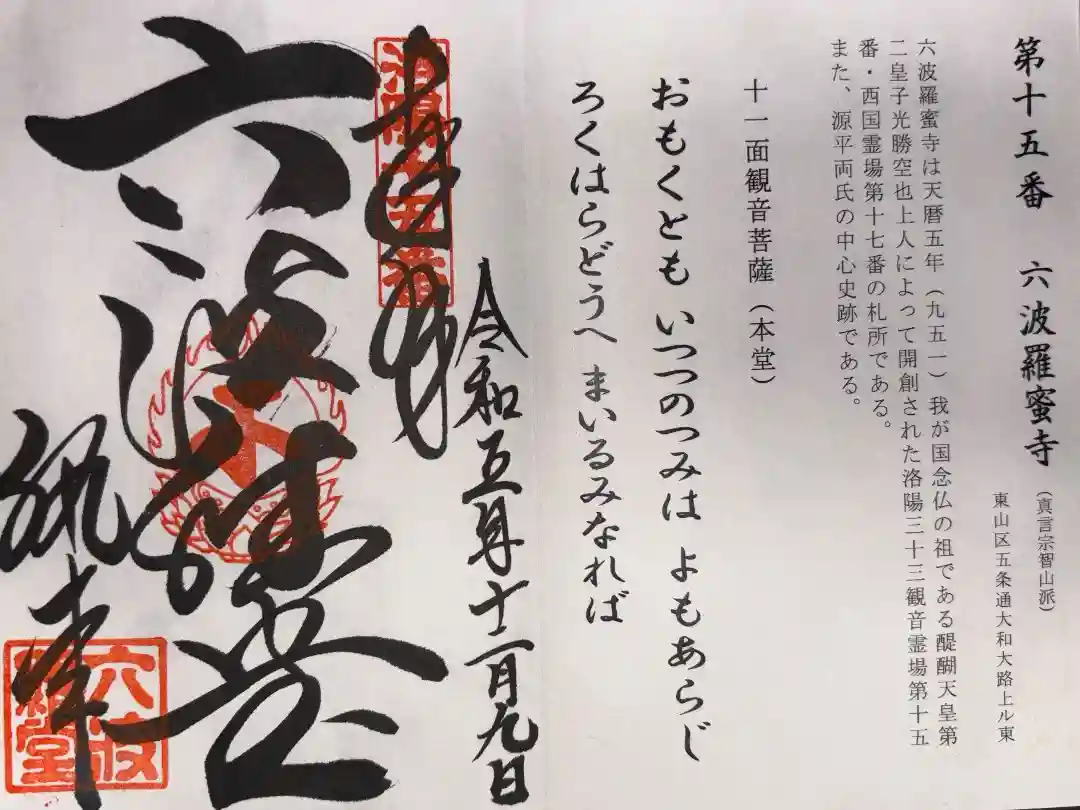 第十五番　六波羅蜜寺
（真言宗智山派）
東山区五条通大和大路上ル東
六波羅蜜寺は天暦五年（九五一）我が国念仏の祖である醍醐天皇第
二皇子光勝空也上人によって開創された洛陽三十三観音霊場第十五
番・西国霊場第十七番の札所である。
また、源平両氏の中心史跡である。
十一面観音菩薩（本堂）
おもくとも いつつのつみは よもあらじ
ろくはらどうへ まいるみなれば
令和五年十二月九日
奉拝
洛陽十五番
六波羅堂
六波羅堂